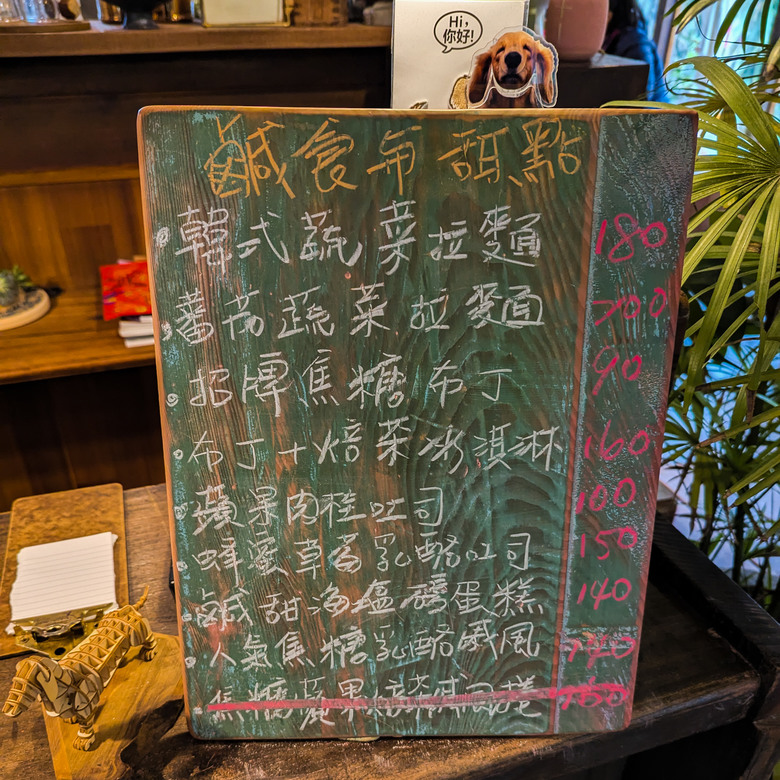 Hi,
你好!
鹹食布甜點
韓式蔬菜拉麵 180
蕃茄蔬菜拉麵 200
招牌焦糖布丁 90
布丁+焙茶冰淇淋 160
蘋果肉桂吐司 100
蜂蜜草莓乳酪吐司 150
鹹甜海塩磅蛋糕 140
人氣焦糖乳酪戚風 140
焦糖蘋果焙茶戚風捲 160